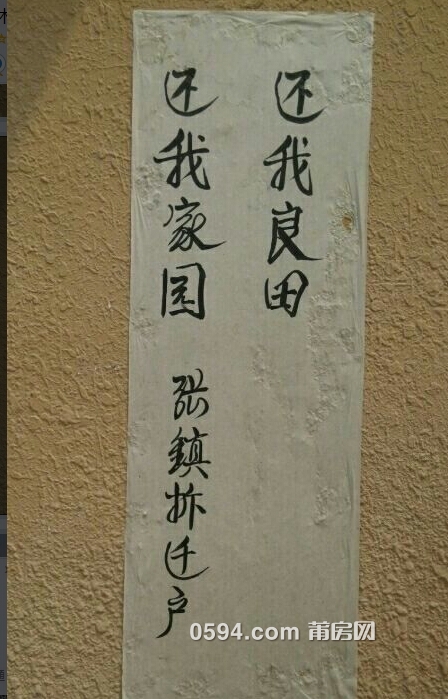 还我良田
还我家园
张鎮拆迁户
0594.com 莆房网